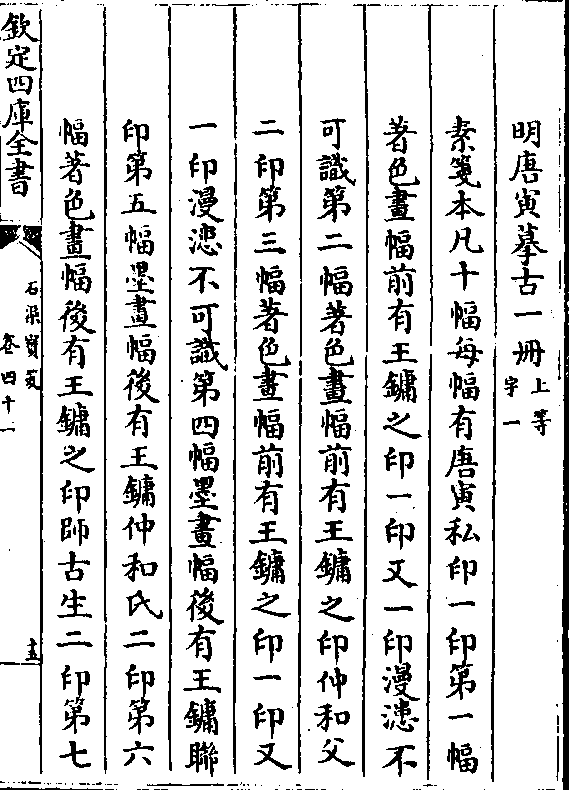 明唐寅摹古一冊上等
字一
素箋本凡十幅每幅有唐寅私印一印第一幅
著色畫幅前有王鏞之印一印又一印漫漶不
可識第二幅著色畫幅前有王鏞之印仲和父
二印第三幅著色畫幅前有王鏞之印一印又
一印漫漶不可識第四幅墨畫幅後有王鏞聯
印第五幅墨畫幅後有王鏞仲和氏二印第六
幅著色畫幅後有王鏞之印師古生二印第七
欽定四庫全書
石渠寶笈
卷四十一
十五